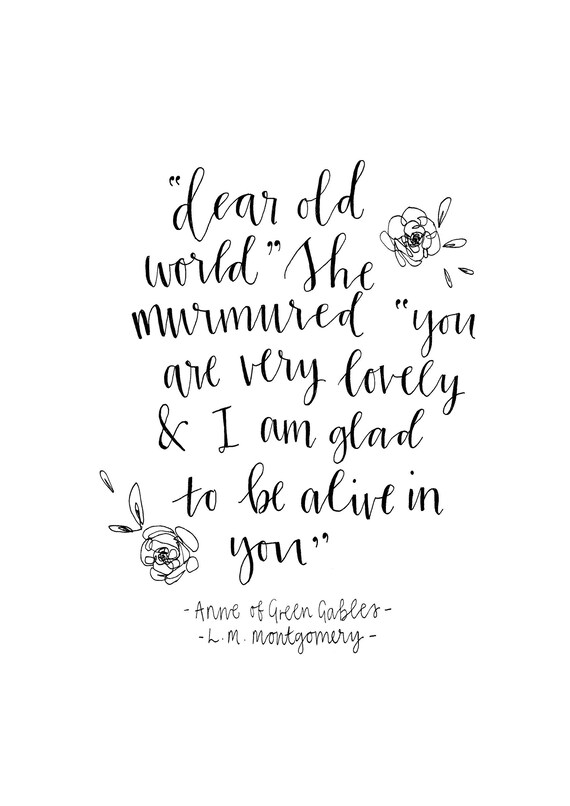 “dear old
world” She
murmured “you
are very lovely
& I am glad
to be alive in
you”
- Anne of Green Gables -
- L. M. Montgomery -